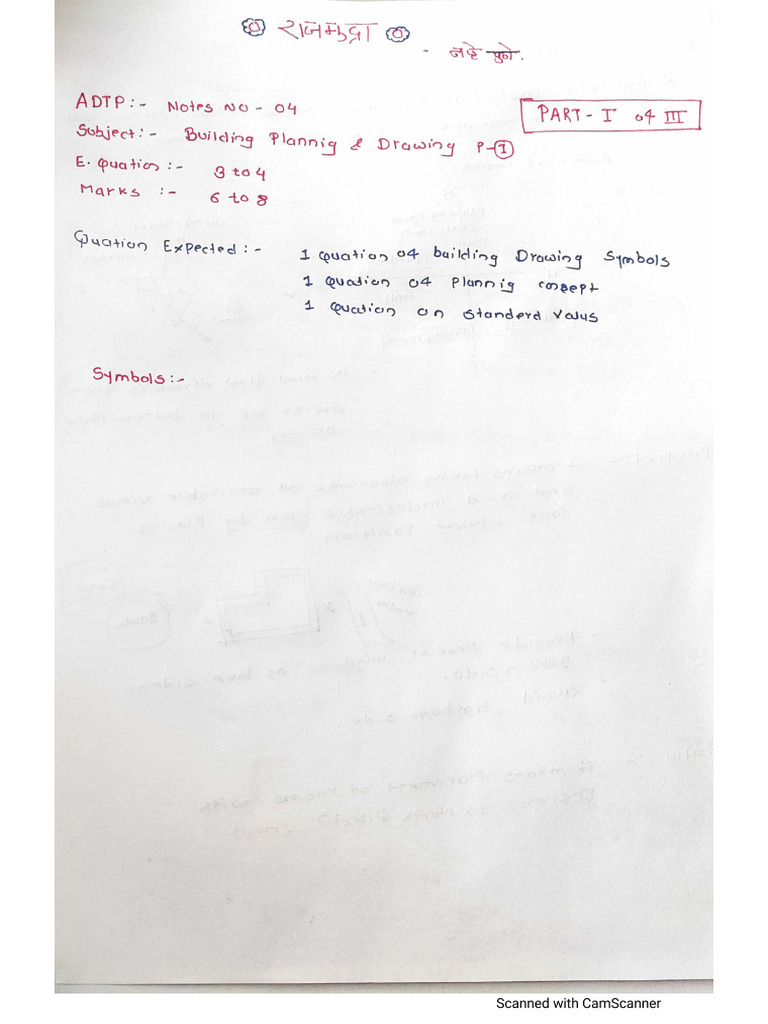 राजमुद्रा
- नद्रे
ADTP:- Notes NO - 04
PART - I 04 III
Subject:- Building Plannig & Drawing P-①
E. Quation :- 3 to 4
Marks :- 6 to 8
Quation Expected:- 1 Quation 04 building Drawing Symbols
1 Quation 04 Plannig consept
1 Quation on standerd Values
Symbols:-
Scanned with CamScanner